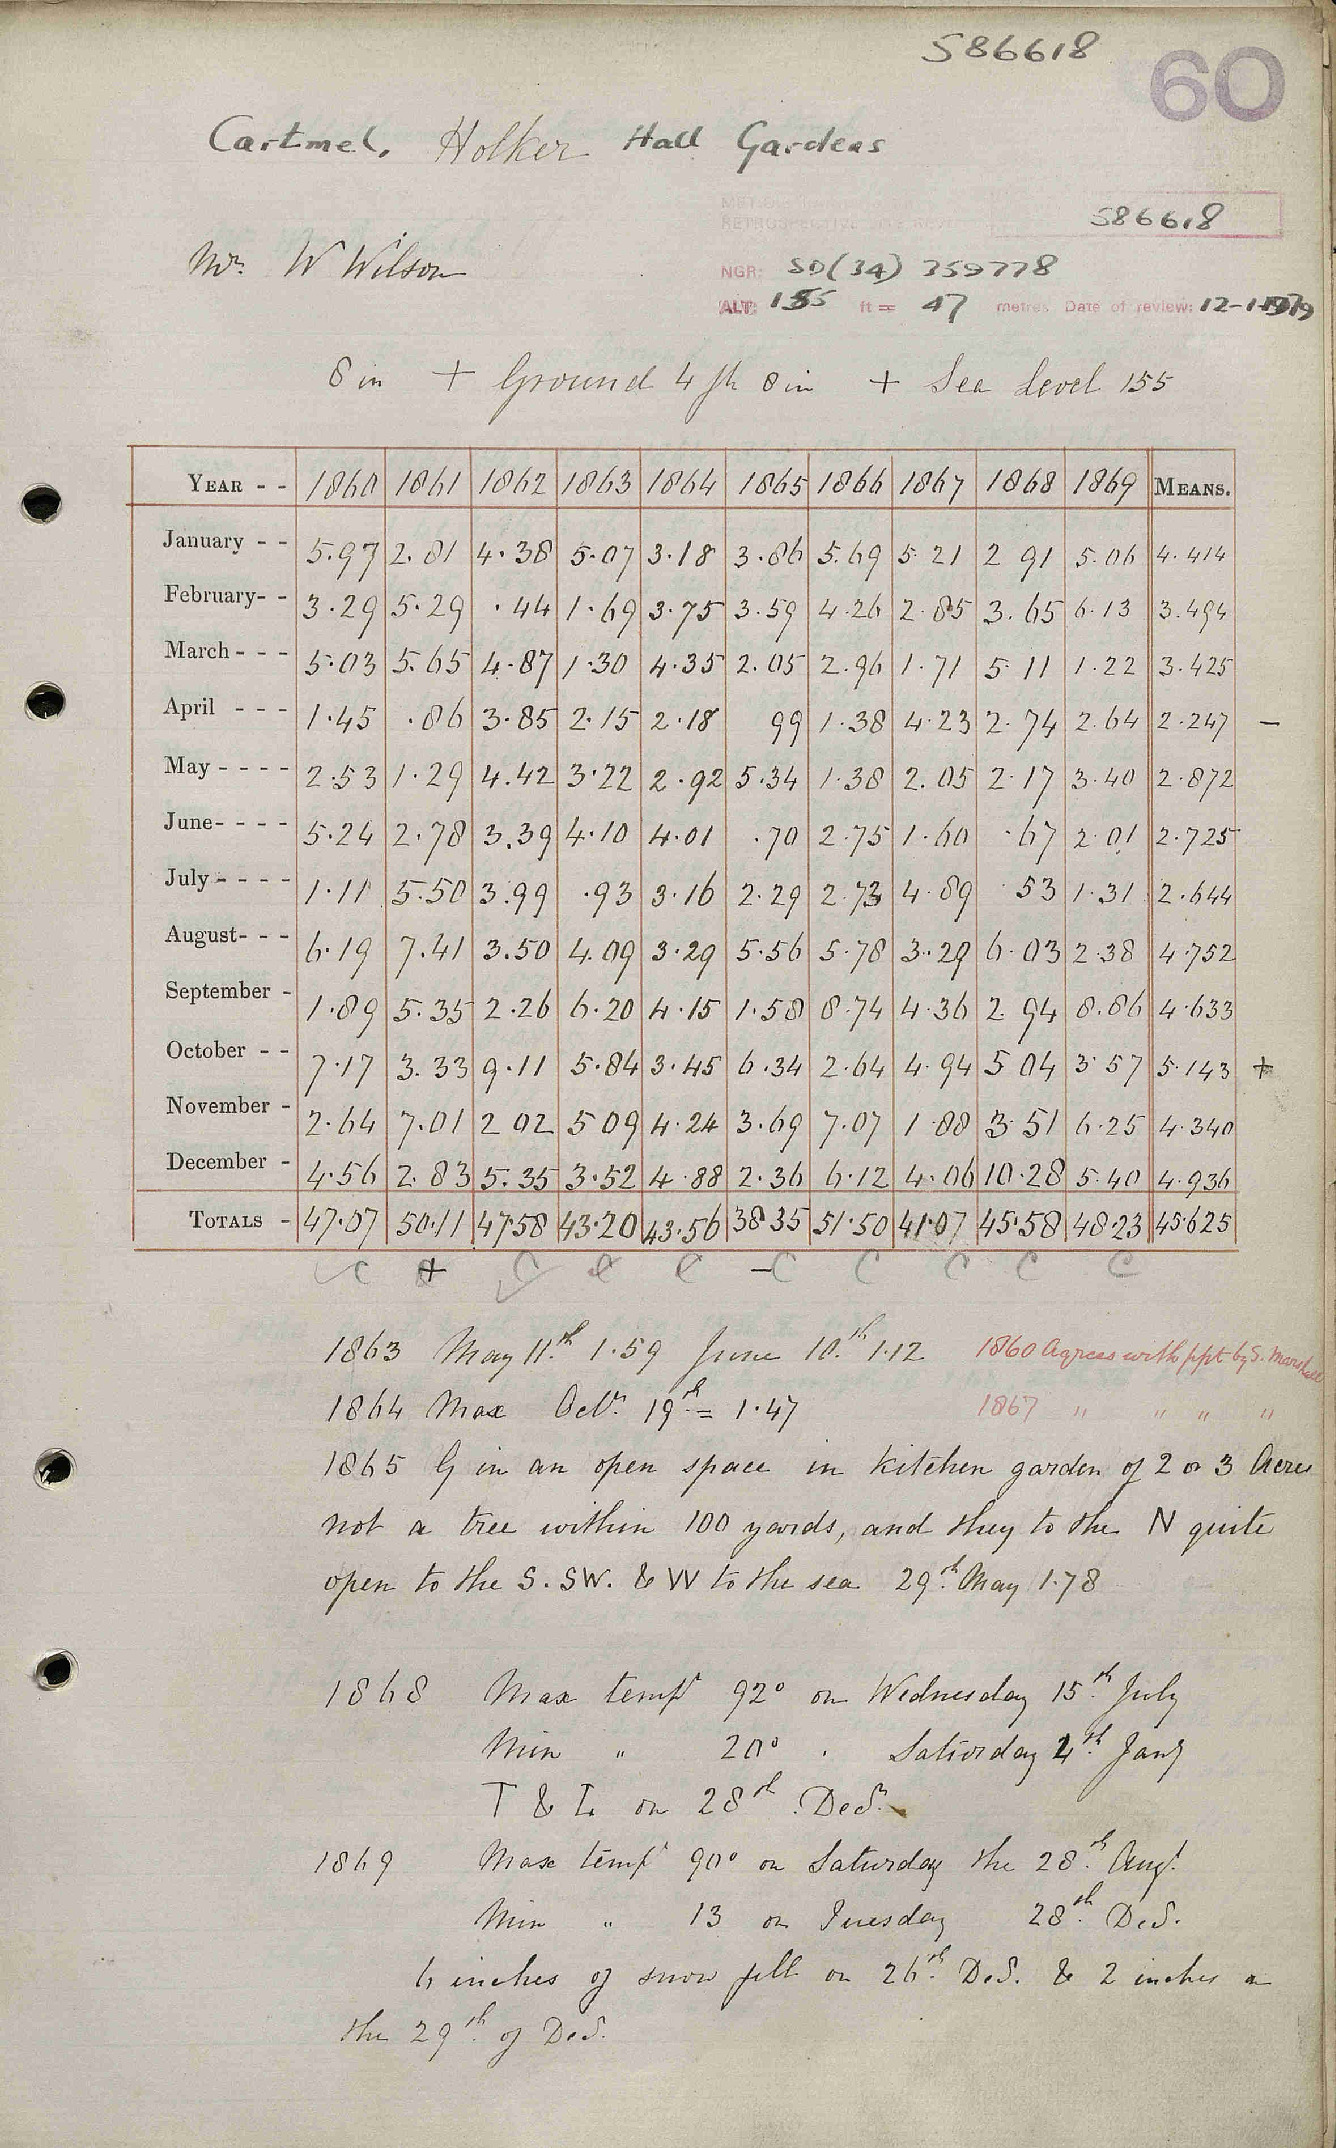 586618
60
Cartmel, Holker Hall Gardens
586618
Mr. W Wilson
NGR: SD(34) 359778
ALT: 155 ft = 47 metres Date of review: 12-1-1979
8 in + Ground 4 ft 8 in + Sea Level 155
YEAR - - 1860 1861 1862 1863 1864 1865 1866 1867 1868 1869 MEANS.
January - - 5.97 2.81 4.38 5.07 3.18 3.86 5.69 5.21 2 91 5.06 4.414
February- - 3.29 5.29 .44 1.69 3.75 3.59 4.26 2.85 3.65 6.13 3.494
March - - - 5.03 5.65 4.87 1.30 4.35 2.05 2.96 1.71 5 11 1.22 3.425
April - - - 1.45 .86 3.85 2.15 2.18 99 1.38 4.23 2.74 2.64 2.247 -
May - - - - 2.53 1.29 4.42 3.22 2.92 5.34 1.38 2.05 2.17 3.40 2.872
June- - - - 5.24 2.78 3.39 4.10 4.01 .70 2.75 1.60 .67 2.01 2.725
July - - - - 1.11 5.50 3.99 .93 3.16 2.29 2.73 4.89 .53 1.31 2.644
August- - - 6.19 7.41 3.50 4.09 3.29 5.56 5.78 3.29 6.03 2.38 4.752
September - 1.89 5.35 2.26 6.20 4.15 1.58 8.74 4.36 2.94 8.86 4.633
October - - 7.17 3.33 9.11 5.84 3.45 6.34 2.64 4.94 5 04 3.57 5.143 +
November - 2.64 7.01 2 02 5 09 4.24 3.69 7.07 1 88 3.51 6.25 4.340
December - 4.56 2.83 5.35 3.52 4.88 2.36 6.12 4.06 10.28 5.40 4.936
TOTALS - 47.07 50.11 47.58 43.20 43.56 38.35 51.50 41.07 45.58 48.23 45.625
C + C C C -C C C C C
1863 May 11th 1.59 June 10th 1.12 1860 Agrees with ppt by S. Marshall
1864 Max Octr 19th = 1.47 1867 " " " "
1865 G in an open space in kitchen garden of 2 or 3 Acres
not a tree within 100 yards, and they to the N quite
open to the S. SW. & W to the sea 29th May 1.78
1868 Max tempr 92° on Wednesday 15th July
Min " 20° . Saturday 4th Jany
T & L on 28th Decr.
1869 Max tempr 90° on Saturday the 28th Augt.
Min " 13 on Tuesday 28th Decr.
6 inches of snow fell on 26th Decr. & 2 inches on
the 29th of Decr.